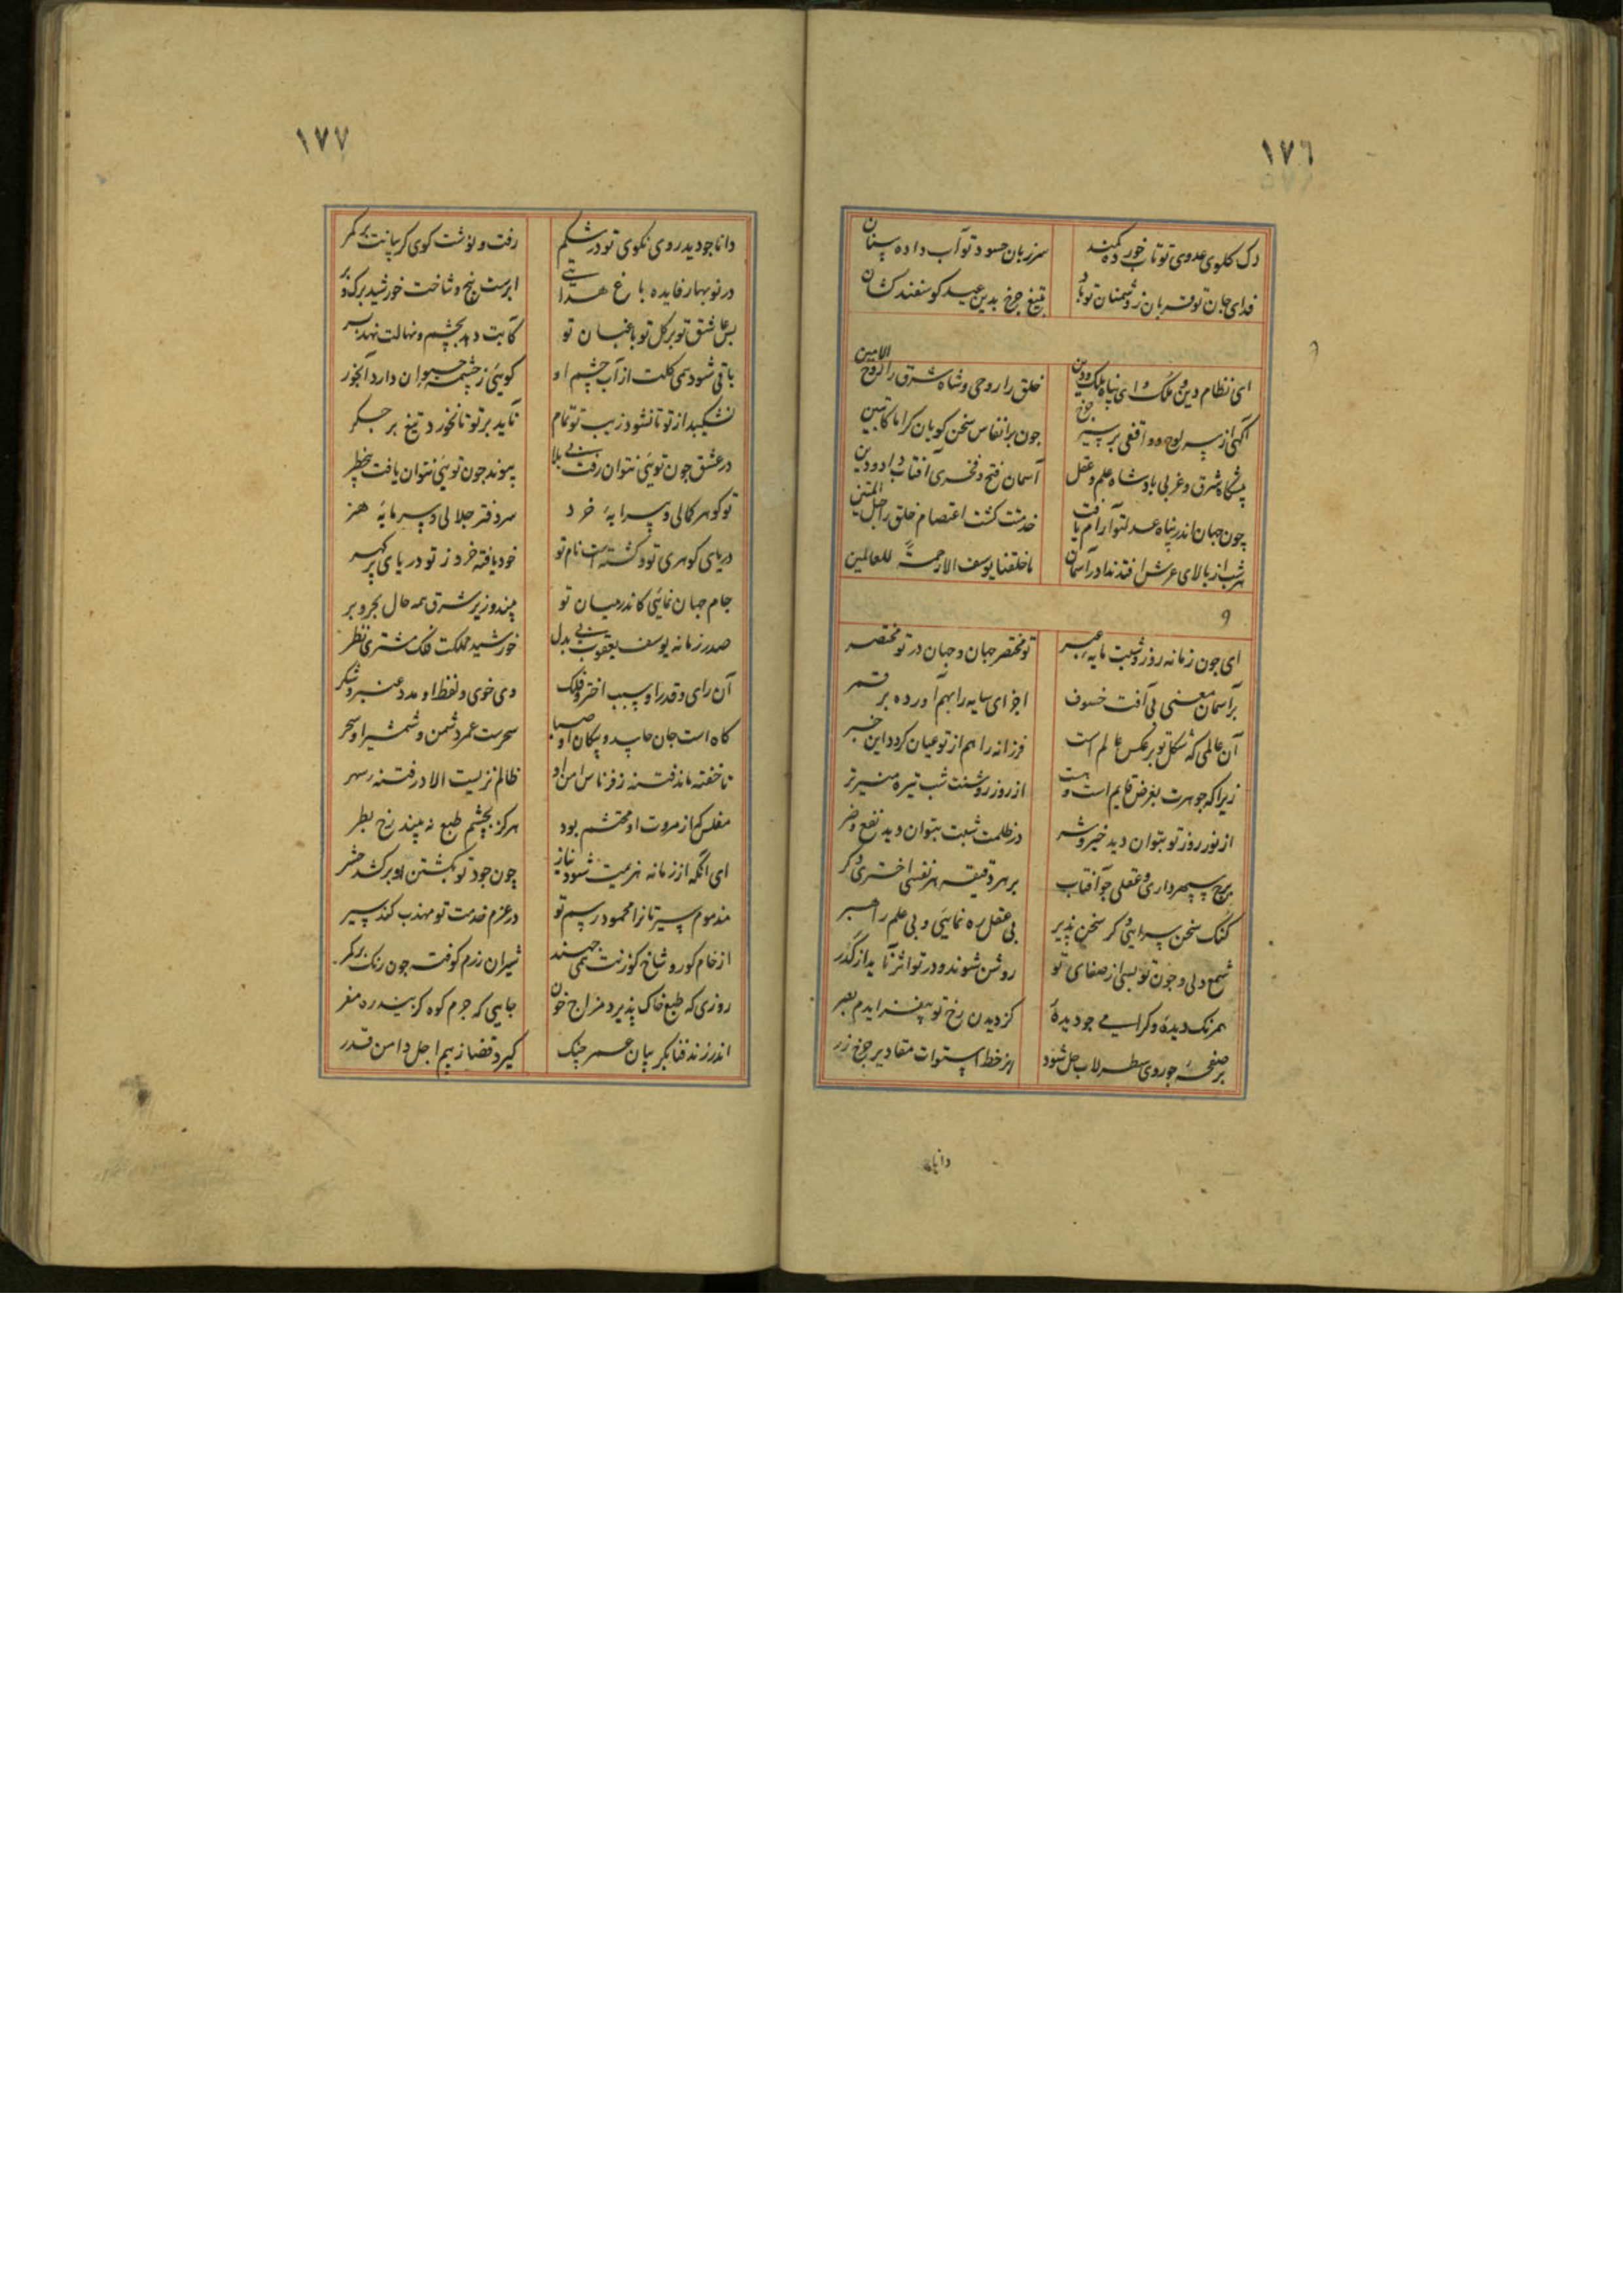 ١٧٦
رک گلوی عدوی تو تاب خورده کمند سر زبان حسود تو آب داده سنان
فدای جان تو قربان ز دشمنان تو باد بتیغ چرخ بدین عید گوسفند کشان
ای نظام دین و ملک و ای پناه ملک و دین خلق را روحی و شاه شرق را روح الامین
آگهی از سر لوح و واقفی بر سیر چرخ چون بر انفاس سخن گویان کراما کاتبین
پیشگاه شرق و غربی پادشاه علم و عقل آسمان فتح و فخری آفتاب داد و دین
چون جهان اندر پناه عدل تو آرام یافت خدمتت گشت اعتصام خلق را حبل المتین
هر شب از بالای عرش افتد ندا در آسمان ما خلقنا یوسف الا رحمةً للعالمین
و
ای چون زمانه روز و شبت مایه عبر تو مختصر جهان و جهان در تو مختصر
بر آسمان معنی بی آفت خسوف اجزای سایه را بهم آورده بر قمر
آن عالمی که شکل تو بر عکس عالم است فرزانه را هم از تو عیان گردد این خبر
زیرا که جوهرت بغرض قایم است و هست از روز روشنت شب تیره منیرتر
از نور روز تو بتوان دید خیر و شر در ظلمت شبت بتوان دید نفع و ضر
برج سپهرداری و عقلی چو آفتاب بر هر دقیقه هر نفسی اختری دگر
گنگ سخن سرایی و کر سخن پذیر بی عقل ره نمایی و بی علم راهبر
شمع دلی و چون تو بسی از صفای تو روشن شوند و در تو اثر ناید از گذر
همرنگ دیده و گرامی چو دیده کز دیدن رخ تو بیفزایدم بصر
بر صفحه چو روی سطرلاب حل شود از خط استوات مقادیر چرخ زر
دانا
١٧٧
دانا چو دید روی نکوی تو در شکم رفت و نوشت گوی گریبانت بر کمر
در نوبهار فایده باغ هدایتی ابرست بیخ و شاخت خورشید برگ و بر
بس عاشق تو بر گل تو باغبان تو کآبت دهد بچشم و نهالت نهد بسر
باقی شود همی گلت از آب چشم او گویی ز چشمه حیوان دارد آبخور
نشکیبد از تو تا نشود زیب تو تمام ناید بر تو تا نخورد تیغ بر جگر
در عشق چون تویی نتوان رفت بی بلا پیوند چون تویی نتوان یافت بی خطر
تو گوهر کمالی و پیرایه خرد سردفتر جلالی و سرمایه هنر
دریای گوهری تو و گشته است نام تو خود یافته خرد ز تو دریای پر گهر
جام جهان نمایی کاندر میان تو بیند وزیر شرق همه حال بحر و بر
صدر زمانه یوسف یعقوب بی بدل خورشید مملکت فلک مشتری نظر
آن رای و قدر او سبب اختر و فلک وی خوی و لفظ او مدد عنبر و شکر
گاه است جان حاسد و پیکان او صبا سحرست عمر دشمن و شمشیر او سحر
ناخفته ماند فتنه ز فرناس امن او ظالم نزیست الا در فتنه سهر
مفلس کز مروت او محتشم بود هرگز بچشم طبع نه بیند رخ بطر
ای آنکه از زمانه هزیمت شود نیاز چون جود تو بکشتن او بر کشد حشر
مذموم سیرتانرا محمود رسم تو در عزم خدمت تو مهذب کند سیر
از خام گور و شاخ گوزنت همی جهند شیران رزم کوفته چون رنگ بر کمر
روزی که طبع خاک پذیرد مزاج خون جایی که جرم کوه گزیند ره مفر
اندر زند فنا بگریبان عمر چنگ گیرد قضا ز بیم اجل دامن قدر